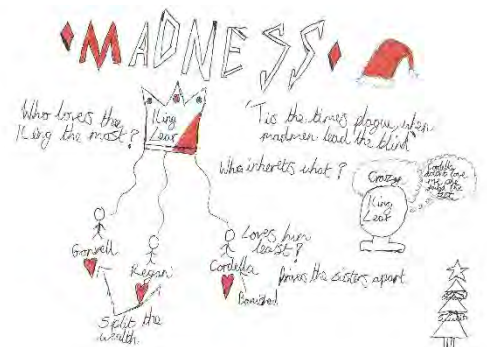 MADNESS
Who loves the
King the most?
King
Lear
'Tis the times plague, when
madmen lead the blind'
Who inherits what?
Crazy
King
Lear
Cordelia
love
me, she
Gonrell
Regan
Cordelia
Loves him
least?
Banished
Drives the sisters apart
Split the
wealth